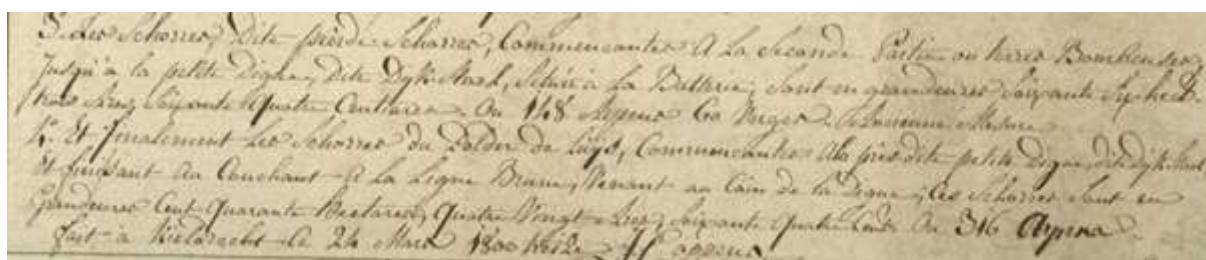 3. Les Schorres, dite pierde Schorres, Commencantes A La Seconde Partie ou terres Bombeuses,
Jusqu'à la petite Digue, dite Dijk Stael, Située à La Batterie, Sont en grandeures Soixante Six hect.
trois Ares, Soixante Quatre Centiares Ou 148 Arpens 60 Verges Ancienne Mesure
4. Et finalement Les Schorres du Polder de Luys, Commencantes A la près dite petite Digue, dite dijk Stael
Et finissant Au Couchant A La Ligne Brune, Venant au Coin de la Digue, Ces Schorres Sont en
Grandeures Cent Quarante Hectares, Quatre Vingt Ares, Soixante Quatre Cent. Ou 316 Arpens.
fait à Kieldrecht Le 24 Mars 1800 treize